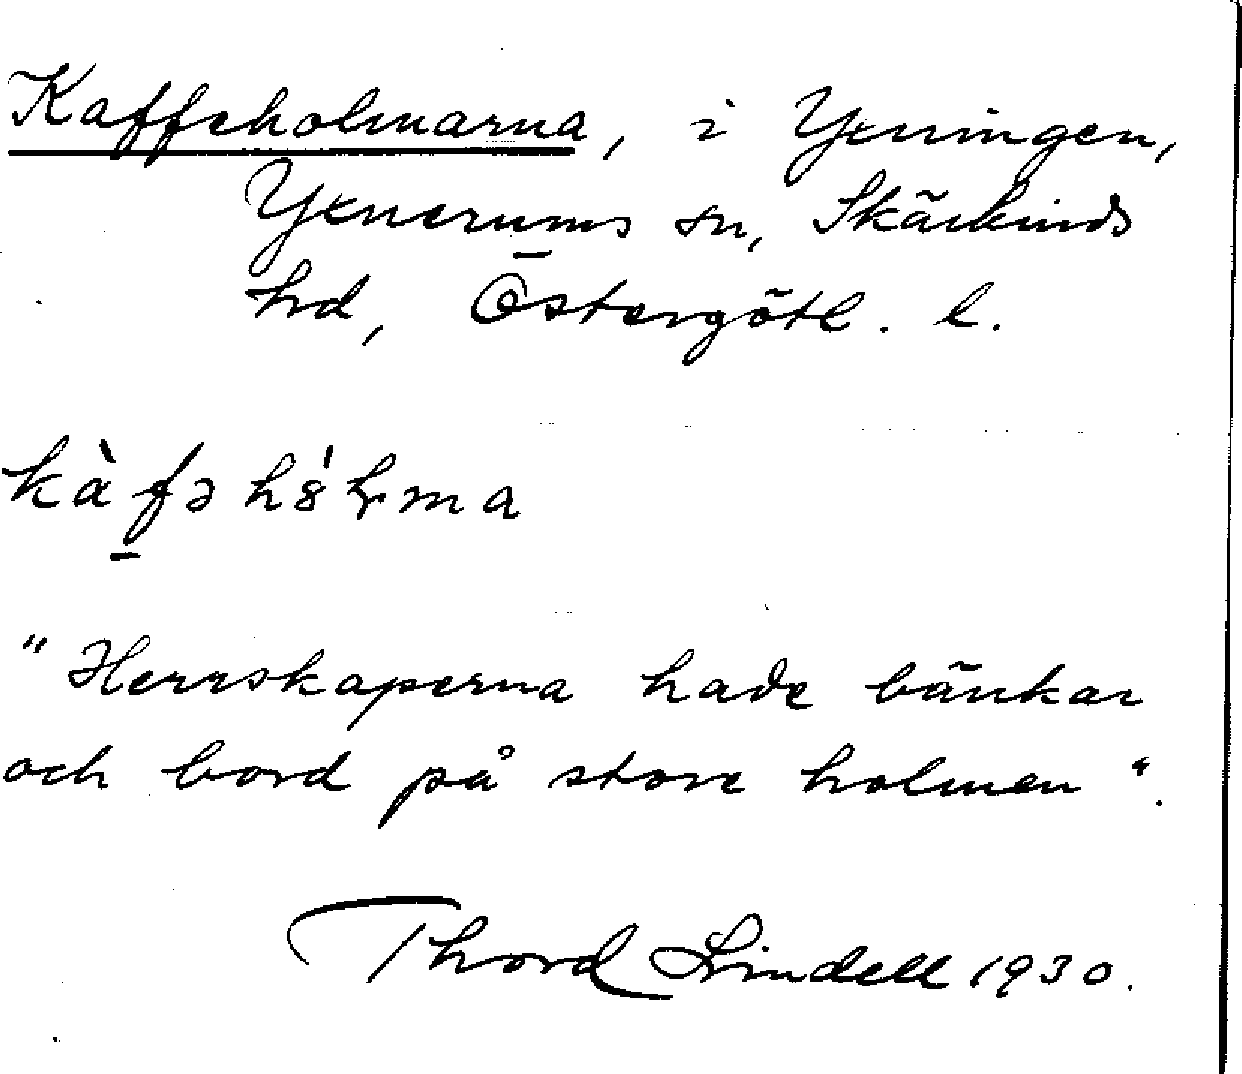 Kaffeholmarna, i Yxningen,
Yxnerums sn, Skärkinds
hd, Östergötl. l.
"Herrskaperna hade bänkar
och bord på store holmen".
Thord Lindell 1930.